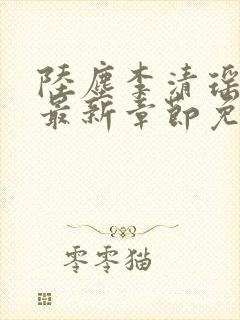 陸塵李清瑤
最新章節免
零零猫